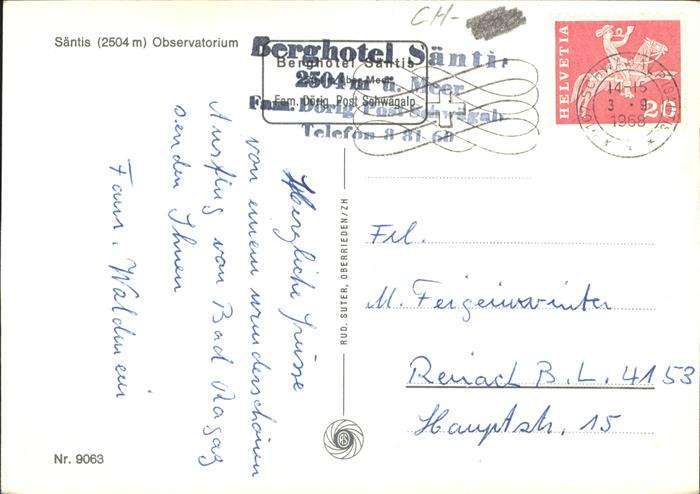 CH-
Säntis (2504 m) Observatorium
Berghotel Säntis
2504 m ü. Meer
Fam. Dörig Post Schwägalp
Telefon 8 81 60
Berghotel Säntis
Fam. Dörig, Post Schwägalp
HELVETIA
20
14-15
3.-9.
1968
Herzliche Grüsse
von einem wunderschönen
Ausflug von Bad Ragaz
senden Ihnen
Fam. Waldmein
RUD. SUTER, OBERRIEDEN/ZH
Frl.
M. Feigenwinter
Reinach B.L. 4153
Hauptstr. 15
Nr. 9063